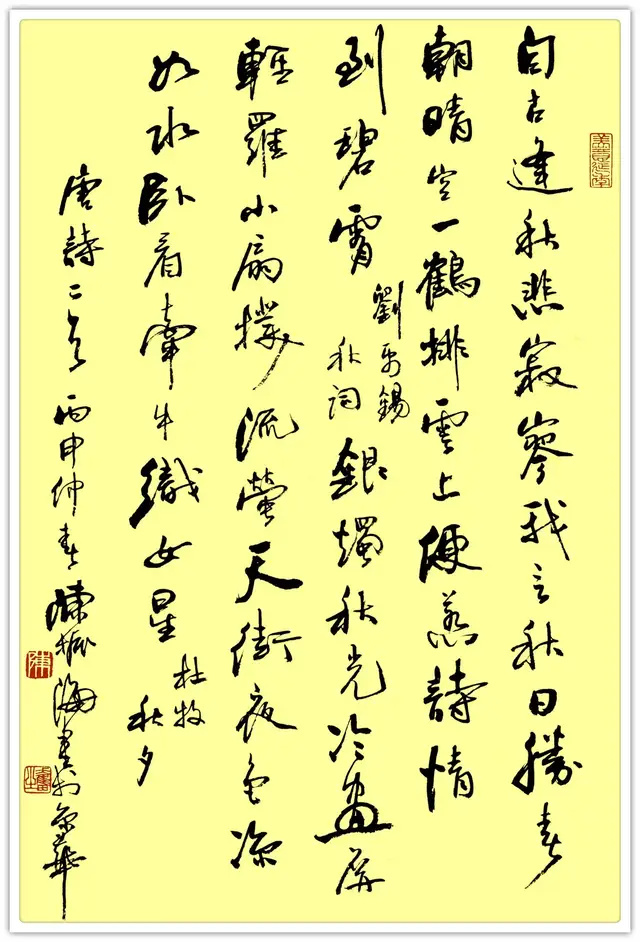 自古逢秋悲寂寥我言秋日勝春
朝晴空一鶴排雲上便惹詩情
到碧霄
劉禹錫
秋詞
銀燭秋光冷畫屏
輕羅小扇撲流螢天街夜色涼
如水卧看牽牛織女星
杜牧
秋夕
唐詩二首 丙申仲春 陳振海書於京華
陳